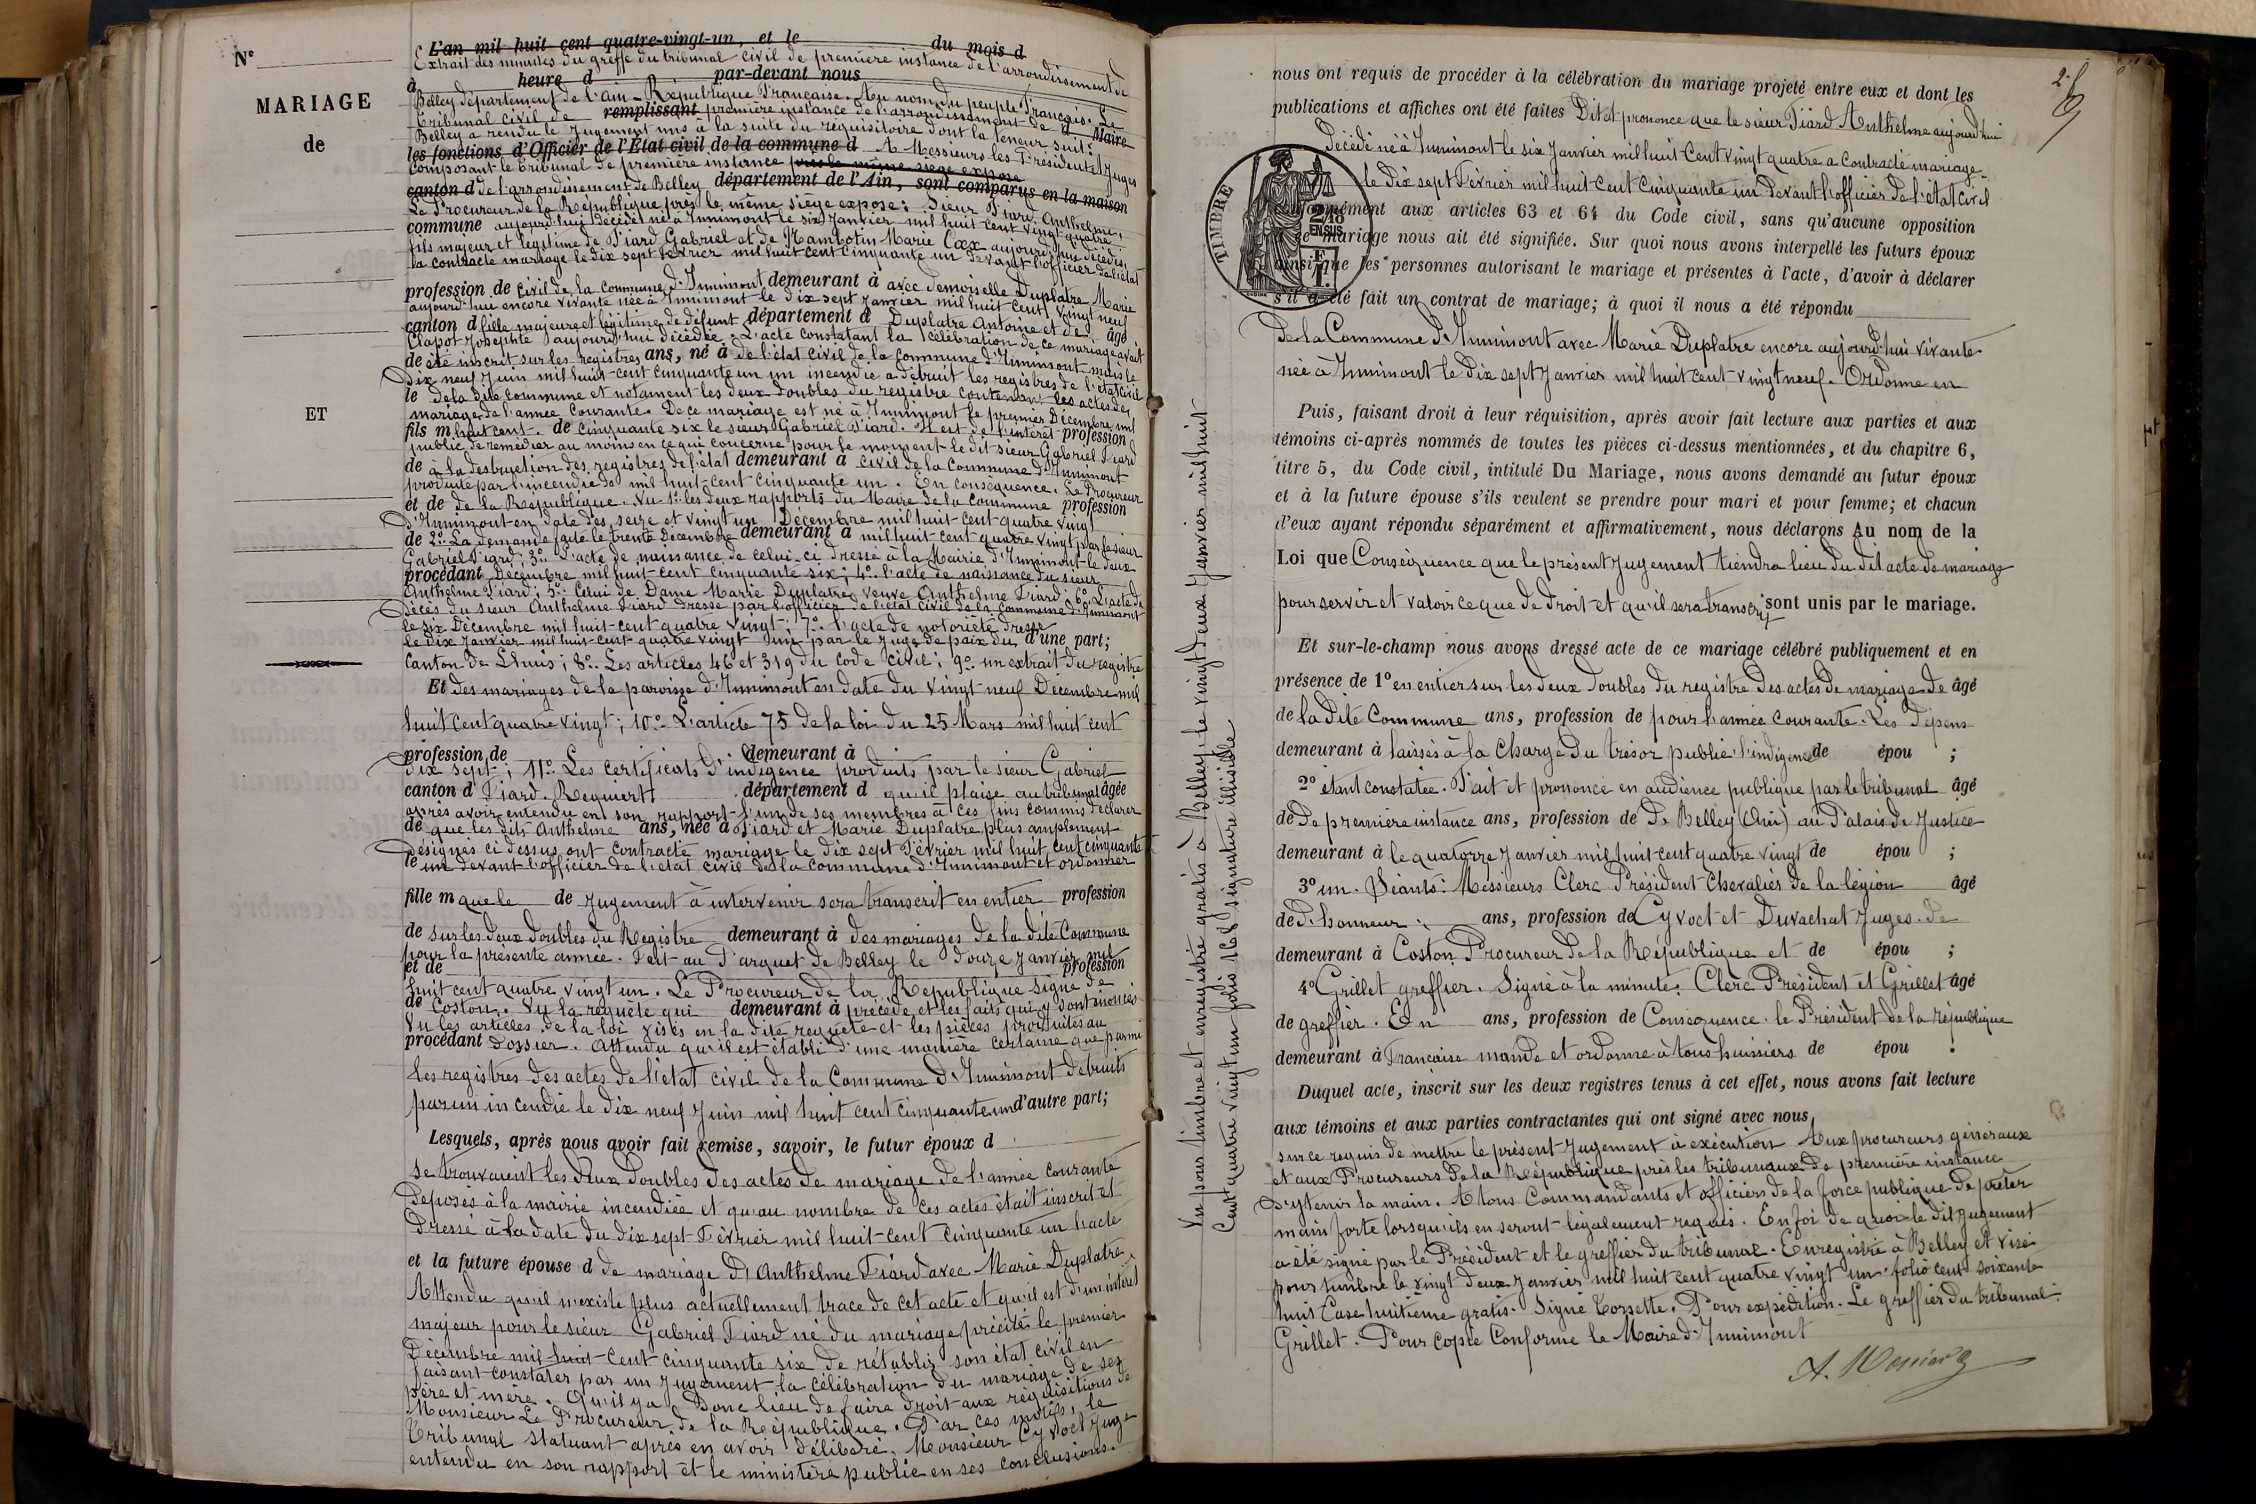 N°
MARIAGE
de
ET
L'an mil huit cent quatre-vingt-un, et le du mois d
Extrait des minutes du greffe du tribunal civil de première instance de l'arrondissement de
à heure d par-devant nous
Belley département de l'ain - République Française. Au nom du peuple Français. Le
Tribunal civil de remplissant première instance de l'arrondissement de d Maire
Belley a rendu le Jugement mis à la suite du réquisitoire dont la teneur suit:
les fonctions d'Officier de l'État civil de la commune d A Messieurs les Président et Juges
composant le tribunal de première instance près le même siège expose
canton d de l'arrondissement de Belley département de l'Ain, sont comparus en la maison
Le Procureur de la République près le même siège expose: Sieur Tiard Anthelme,
commune aujourd'hui décédé né à Innimont le six Janvier mil huit cent vingt quatre
fils majeur et légitime de Tiard Gabriel et de Mambotin Marie aujourd'hui décédés,
a contracté mariage le dix sept février mil huit cent cinquante un devant l'officier de l'état
profession de civil de la commune d'Innimont demeurant à avec demoiselle Duplatre Marie
aujourd'hui encore vivante née à Innimont le dix sept Janvier mil huit cent vingt neuf
canton d fille majeure et légitime de défunt département d Duplatre Antoine et de âgé
Clapot Josephte aujourd'hui décédée. L'acte constatant la célébration de ce mariage avait
de été inscrit sur les registres ans, né à de l'état civil de la commune d'Innimont mais le
Dix neuf Juin mil huit cent cinquante un un incendie a détruit les registres de l'état civil
le de la dite commune et notament les deux doubles du registre contenant les actes de
mariage de l'année courante. De ce mariage est né à Innimont le premier Décembre mil
fils m huit cent de cinquante six le sieur Gabriel Tiard. Il est de l'intérêt profession
public de remédier au moins en ce qui concerne pour le moment le dit sieur Gabriel Tiard
de à la destruction des registres de l'état demeurant à civil de la Commune d'Innimont
produite par l'incendie de mil huit-cent cinquante un. En conséquence. Le Procureur
et de de la République. Vu 1° les deux rapports du Maire de la Commune profession
d'Innimont en date des seize et vingt un Décembre mil huit-cent quatre vingt
de 2° La demande faite le trente Décembre demeurant à mil huit-cent quatre vingt par le sieur
Gabriel Tiard; 3° L'acte de naissance de celui-ci dressé à la Mairie d'Innimont le deux
procédant Décembre mil huit-cent cinquante six; 4° l'acte de naissance du sieur
Anthelme Tiard; 5° Celui de Dame Marie Duplatre veuve Anthelme Tiard; 6° L'acte de
décès du sieur Anthelme Tiard dressé par l'officier de l'état civil de la commune d'Innimont
le six Décembre mil huit-cent quatre vingt; 7° l'acte de notoriété dressé
le dix Janvier mil huit-cent quatre vingt un par le Juge de paix du d'une part;
canton de Lhuis; 8° Les articles 46 et 319 du Code civil; 9° un extrait du registre
Et des mariages de la paroisse d'Innimont en date du vingt neuf Décembre mil
huit cent quatre vingt; 10° L'article 75 de la loi du 25 Mars mil huit cent
profession de demeurant à
dix sept; 11° Les certificats d'indigence produits par le sieur Gabriel
canton d Tiard. Requiert département d qu'il plaise au tribunal âgée
après avoir entendu en son rapport l'un de ses membres à ces fins commis déclarer
de que les dits Anthelme ans, née à Tiard et Marie Duplatre plus amplement
désignés ci dessus ont contracté mariage le dix sept Février mil huit cent cinquante
le un devant l'officier de l'état civil de la Commune d'Innimont et ordonner
fille m que le de Jugement à intervenir sera transcrit en entier profession
de sur les deux doubles du Registre demeurant à des mariages de la dite Commune
pour la présente année. Fait au Parquet de Belley le douze Janvier mil
et de profession
huit cent quatre vingt un. Le Procureur de la République signé de
de Coston. Vu la requête qui demeurant à précède et les faits qui y sont énoncés
Vu les articles de la loi visés en la dite requête et les pièces produites au
procédant Dossier. Attendu qu'il est établi d'une manière certaine que parmi
les registres des actes de l'état civil de la Commune d'Innimont détruits
par un incendie le dix neuf Juin mil huit cent cinquante un d'autre part;
Lesquels, après nous avoir fait remise, savoir, le futur époux d
se trouvaient les deux doubles des actes de mariage de l'année courante
déposés à la mairie incendiée et qu'au nombre de ces actes était inscrit et
dressé à la date du dix sept Février mil huit-cent cinquante un l'acte
et la future épouse d de mariage d'Anthelme Tiard avec Marie Duplatre
Attendu qu'il n'existe plus actuellement trace de cet acte et qu'il est d'un intérêt
majeur pour le sieur Gabriel Tiard né du mariage précité le premier
Décembre mil huit-cent cinquante six de rétablir son état civil en
faisant constater par un Jugement la célébration du mariage de ses
père et mère. Qu'il y a donc lieu de faire droit aux réquisitions de
Monsieur Le Procureur de la République. Par ces motifs, le
Tribunal statuant après en avoir délibéré, Monsieur Cyvoct Juge
entendu en son rapport et le ministère public en ses conclusions.
Vu pour timbre et enregistré gratis à Belley, le vingt deux Janvier mil huit
Cent quatre vingt un folio 168 signature illisible
nous ont requis de procéder à la célébration du mariage projeté entre eux et dont les
publications et affiches ont été faites Dit et prononce que le sieur Tiard Anthelme aujourd'hui
décédé né à Innimont le six Janvier mil huit-cent vingt quatre a contracté mariage
le dix sept Février mil huit-cent cinquante un devant l'officier de l'état civil
TIMBRE
2/10
EN SUS
conformément aux articles 63 et 64 du Code civil, sans qu'aucune opposition
à ce mariage nous ait été signifiée. Sur quoi nous avons interpellé les futurs époux
ainsi que les personnes autorisant le mariage et présentes à l'acte, d'avoir à déclarer
s'il a été fait un contrat de mariage; à quoi il nous a été répondu
de la Commune d'Innimont avec Marie Duplatre encore aujourd'hui vivante
née à Innimont le dix sept Janvier mil huit cent vingt neuf. Ordonne en
Puis, faisant droit à leur réquisition, après avoir fait lecture aux parties et aux
témoins ci-après nommés de toutes les pièces ci-dessus mentionnées, et du chapitre 6,
titre 5, du Code civil, intitulé Du Mariage, nous avons demandé au futur époux
et à la future épouse s'ils veulent se prendre pour mari et pour femme; et chacun
d'eux ayant répondu séparément et affirmativement, nous déclarons Au nom de la
Loi que Conséquence que le présent Jugement tiendra lieu du dit acte de mariage
pour servir et valoir ce que de droit et qu'il sera transcrit sont unis par le mariage.
Et sur-le-champ nous avons dressé acte de ce mariage célébré publiquement et en
présence de 1° en entier sur les deux doubles du registre des actes de mariage de âgé
de la dite Commune ans, profession de pour l'année courante. Les dépens
demeurant à laissés à la charge du trésor public l'indigence de épou ;
2° étant constatée. Fait et prononcé en audience publique par le tribunal âgé
de de première instance ans, profession de de Belley (Ain) au Palais de Justice
demeurant à le quatorze Janvier mil huit-cent quatre vingt de épou ;
3° un. Séants: Messieurs Clerc Président Chevalier de la légion âgé
de d'honneur; ans, profession de Cyvoct et Duvachat Juges. de
demeurant à Coston Procureur de la République et de épou ;
4° Grillet greffier. Signé à la minute: Clerc Président et Grillet âgé
de greffier. En ans, profession de Conséquence le Président de la république
demeurant à Française mande et ordonne à tous huissiers de épou .
Duquel acte, inscrit sur les deux registres tenus à cet effet, nous avons fait lecture
aux témoins et aux parties contractantes qui ont signé avec nous
sur ce requis de mettre le présent Jugement à exécution Aux procureurs généraux
et aux Procureurs de la République près les tribunaux de première instance
d'y tenir la main. A tous Commandants et officiers de la force publique de prêter
main forte lorsqu'ils en seront légalement requis. En foi de quoi le dit Jugement
a été signé par le Président et le greffier du tribunal. Enregistré à Belley et visé
pour timbre le vingt deux Janvier mil huit cent quatre vingt un folio cent soixante
huit Case huitième gratis. Signé Cossette. Pour expédition. Le greffier du tribunal
Grillet. Pour copie Conforme le Maire d'Innimont